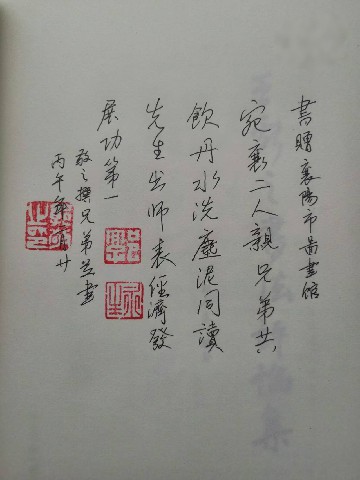 書贈襄陽市圖書館
宛襄二人親兄弟共
飲丹水洗塵泥同讀
先生出師表經濟發
展功第一
敬之撰兄弟並書
丙午年 廿